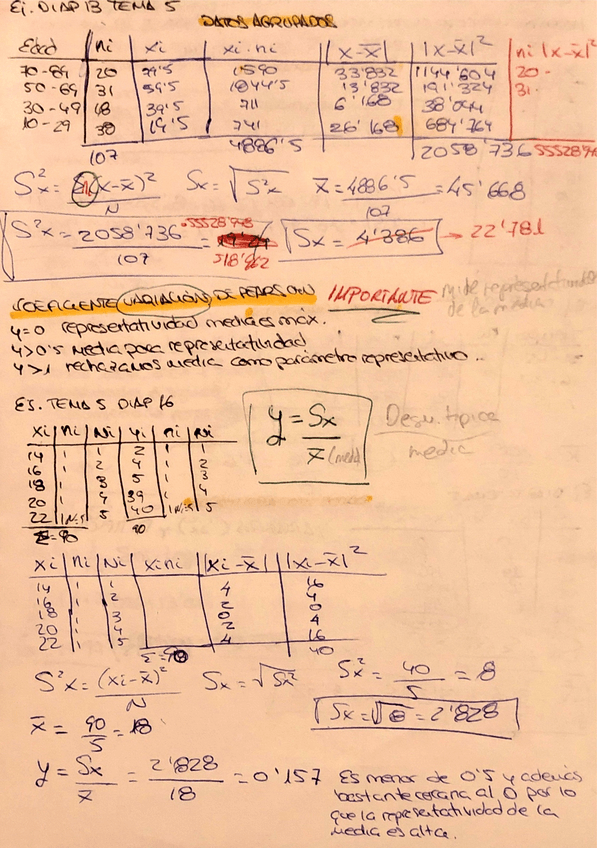 Ej. DIAP 13 TEMA 5
DATOS AGRUPADOS
Edad | ni | xi | xi·ni | |x-x̄| | |x-x̄|² | ni |x-x̄|²
70-89 | 20 | 79'5 | 1590 | 33'832 | 1144'604 | 20·
50-69 | 31 | 59'5 | 1844'5 | 13'832 | 191'324 | 31·
30-49 | 18 | 39'5 | 711 | 6'168 | 38'044
10-29 | 38 | 19'5 | 741 | 26'168 | 684'764
107 4886'5 2058'736 55528'
S²x = (x-x̄)² / N Sx = √S²x x̄ = 4886'5 / 107 = 45'668
S²x = 2058'736 / 107 = 518'962 Sx = 4'386 → 22'781
COEFICIENTE VARIACIÓN DE PEARSON IMPORTANTE mide representatividad
de la media
y=0 representatividad media es máx.
y>0'5 media poca representatividad
y>1 rechazamos media como parámetro representativo..
EJ. TEMA 5 DIAP 16
y = Sx / x̄ (media) Desv. típica / media
xi | ni | Ni | yi | ni | Ni
14 | 1 | 1 | 2 | 1 | 1
16 | 1 | 2 | 4 | 1 | 2
18 | 1 | 3 | 5 | 1 | 3
20 | 1 | 4 | 39 | 1 | 4
22 | 1 | 5 | 40 | 1 | 5
N=5 N=5
Σ=90 90
xi | ni | Ni | xi·ni | |xi-x̄| | |xi-x̄|²
14 | 1 | 1 | 4 | 16
16 | 1 | 2 | 2 | 4
18 | 1 | 3 | 0 | 0
20 | 1 | 4 | 2 | 4
22 | 1 | 5 | 4 | 16
Σ=90 40
S²x = (xi-x̄)² / N Sx = √Sx² Sx² = 40 / 5 = 8
x̄ = 90 / 5 = 18 Sx = √8 = 2'828
y = Sx / x̄ = 2'828 / 18 = 0'157 Es menor de 0'5 y además
bastante cercana al 0 por lo
que la representatividad de la
media es alta.